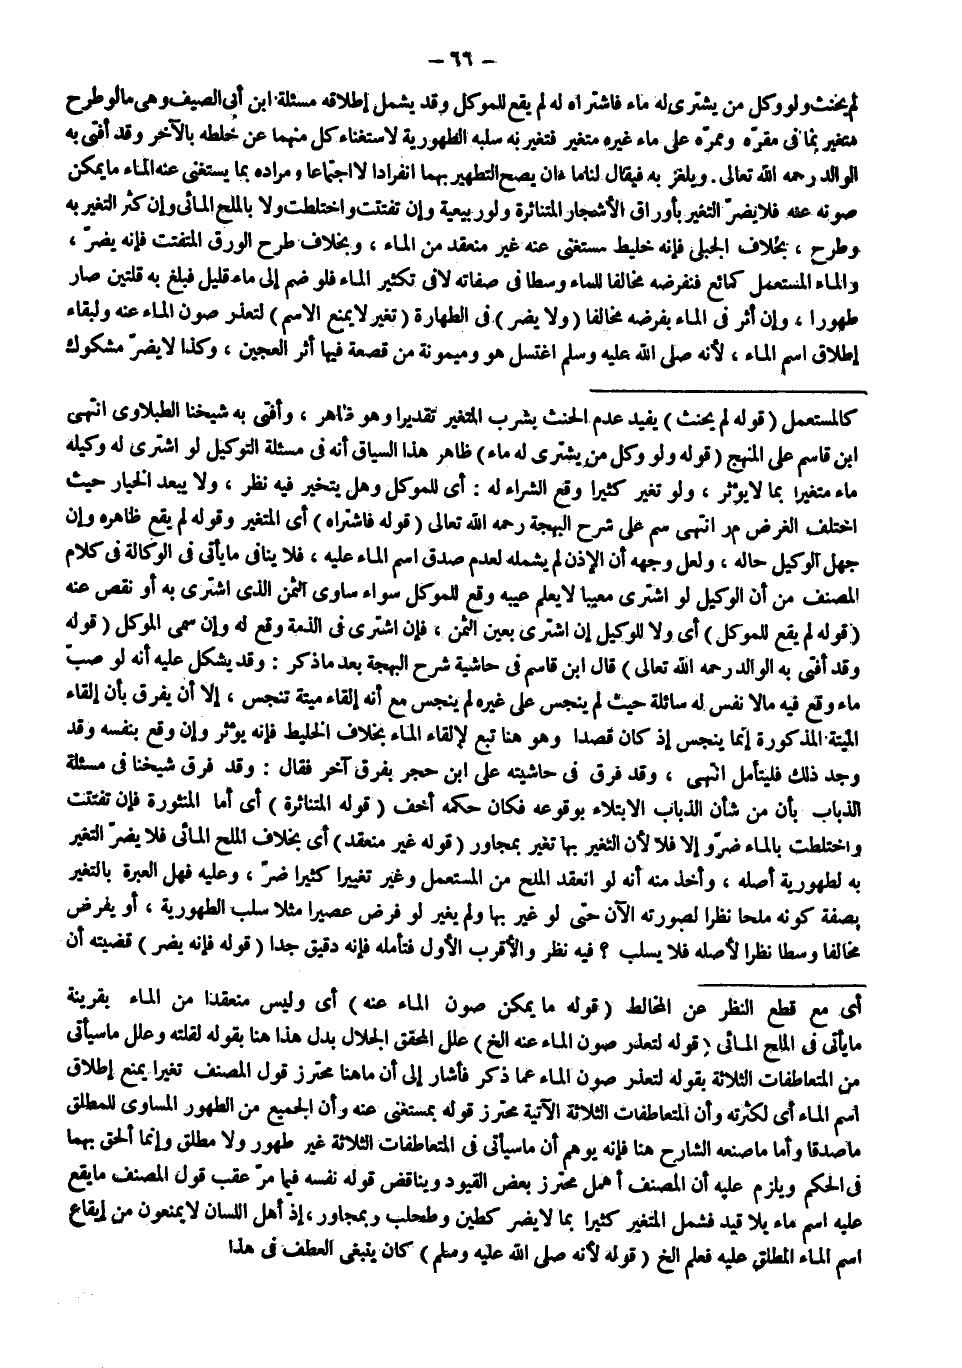 – ٦٦ –
لم يحنث ولو وكل من يشترى له ماء فاشتراه له لم يقع للموكل وقد يشمل إطلاقه مسئلة ابن أبى الصيف وهى مالو طرح
متغير بما فى مقرّه وممرّه على ماء غيره متغير فتغير به سلبه الطهورية لاستغناء كل منهما عن خلطه بالآخر وقد أفتى به
الوالد رحمه الله تعالى . ويلغز به فيقال لنا ماءان يصح التطهير بهما انفرادا لا اجتماعا ومراده بما يستغنى عنه الماء مايمكن
صونه عنه فلا يضرّ التغير بأوراق الأشجار المتناثرة ولو ربيعية وإن تفتتت واختلطت ولا بالملح المائى وإن كثر التغير به
وطرح ، بخلاف الجبلى فإنه خليط مستغنى عنه غير منعقد من الماء ، وبخلاف طرح الورق المتفتت فإنه يضرّ ،
والماء المستعمل كمائع فنفرضه مخالفا للماء وسطا فى صفاته لا فى تكثير الماء فلو ضم إلى ماء قليل فبلغ به قلتين صار
طهورا ، وإن أثر فى الماء بفرضه مخالفا ( ولا يضر ) فى الطهارة ( تغير لايمنع الاسم ) لتعذر صون الماء عنه ولبقاء
إطلاق اسم الماء ، لأنه صلى الله عليه وسلم اغتسل هو وميمونة من قصعة فيها أثر العجين ، وكذا لايضرّ مشكوك
كالمستعمل ( قوله لم يحنث ) يفيد عدم الحنث بشرب المتغير تقديرا وهو ظاهر ، وأفتى به شيخنا الطبلاوى انتهى
ابن قاسم على المنهج ( قوله ولو وكل من يشترى له ماء ) ظاهر هذا السياق أنه فى مسئلة التوكيل لو اشترى له وكيله
ماء متغيرا بما لايؤثر ، ولو تغير كثيرا وقع الشراء له : أى للموكل وهل يتخير فيه نظر ، ولا يبعد الخيار حيث
اختلف الغرض مر انتهى سم على شرح البهجة رحمه الله تعالى ( قوله فاشتراه ) أى المتغير وقوله لم يقع ظاهره وإن
جهل الوكيل حاله ، ولعل وجهه أن الإذن لم يشمله لعدم صدق اسم الماء عليه ، فلا ينافى مايأتى فى الوكالة فى كلام
المصنف من أن الوكيل لو اشترى معيبا لايعلم عيبه وقع للموكل سواء ساوى الثمن الذى اشترى به أو نقص عنه
( قوله لم يقع للموكل ) أى ولا للوكيل إن اشترى بعين الثمن ، فإن اشترى فى الذمة وقع له وإن سمى الموكل ( قوله
وقد أفتى به الوالد رحمه الله تعالى ) قال ابن قاسم فى حاشية شرح البهجة بعد ماذكر : وقد يشكل عليه أنه لو صبّ
ماء وقع فيه مالا نفس له سائلة حيث لم ينجس على غيره لم ينجس مع أنه إلقاء ميتة تنجس ، إلا أن يفرق بأن إلقاء
الميتة المذكورة إنما ينجس إذ كان قصدا وهو هنا تبع لإلقاء الماء بخلاف الخليط فإنه يؤثر وإن وقع بنفسه وقد
وجد ذلك فليتأمل انتهى ، وقد فرق فى حاشيته على ابن حجر بفرق آخر فقال : وقد فرق شيخنا فى مسئلة
الذباب بأن من شأن الذباب الابتلاء بوقوعه فكان حكمه أخف ( قوله المتناثرة ) أى أما المنثورة فإن تفتتت
واختلطت بالماء ضرّ وإلا فلا لأن التغير بها تغير بمجاور ( قوله غير منعقد ) أى بخلاف الملح المائى فلا يضرّ التغير
به لطهورية أصله ، وأخذ منه أنه لو انعقد الملح من المستعمل وغير تغييرا كثيرا ضرّ ، وعليه فهل العبرة بالتغير
بصفة كونه ملحا نظرا لصورته الآن حتى لو غير بها ولم يغير لو فرض عصيرا مثلا سلب الطهورية ، أو يفرض
مخالفا وسطا نظرا لأصله فلا يسلب ؟ فيه نظر والأقرب الأول فتأمله فإنه دقيق جدا ( قوله فإنه يضر ) قضيته أن
أى مع قطع النظر عن المخالط ( قوله ما يمكن صون الماء عنه ) أى وليس منعقدا من الماء بقرينة
مايأتى فى الملح المائى ( قوله لتعذر صون الماء عنه الخ ) علل المحقق الجلال بدل هذا هنا بقوله لقلته وعلل ماسيأتى
من المتعاطفات الثلاثة بقوله لتعذر صون الماء عما ذكر فأشار إلى أن ماهنا محترز قول المصنف تغيرا يمنع إطلاق
اسم الماء أى لكثرته وأن المتعاطفات الثلاثة الآتية محترز قوله بمستغنى عنه وأن الجميع من الطهور المساوى للمطلق
ماصدقا وأما ماصنعه الشارح هنا فإنه يوهم أن ماسيأتى فى المتعاطفات الثلاثة غير طهور ولا مطلق وإنما ألحق بهما
فى الحكم ويلزم عليه أن المصنف أهمل محترز بعض القيود ويناقض قوله نفسه فيما مرّ عقب قول المصنف مايقع
عليه اسم ماء بلا قيد فشمل المتغير كثيرا بما لايضر كطين وطحلب وبمجاور ، إذ أهل اللسان لايمنعون من إيقاع
اسم الماء المطلق عليه فعلم الخ ( قوله لأنه صلى الله عليه وسلم ) كان ينبغى العطف فى هذا